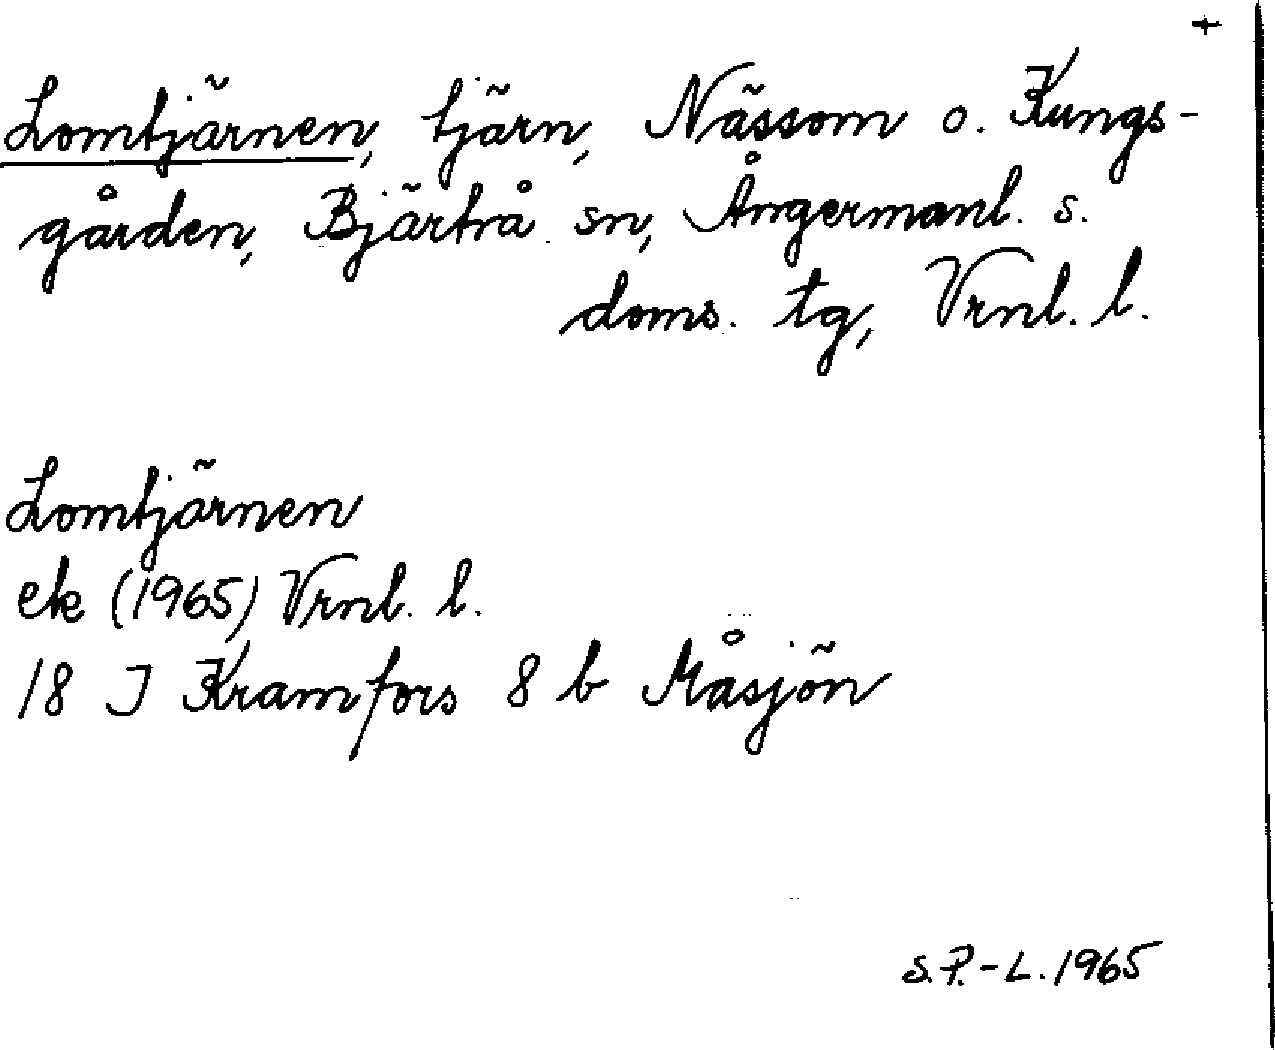 +
Lomtjärnen, tjärn, Nässom o. Kungs-
gården, Bjärtrå sn, Ångermanl. s.
doms. tg, Vrnl. l.
Lomtjärnen
ek (1965) Vrnl. l.
18 J Kramfors 8 b Måsjön
S.P.-L. 1965